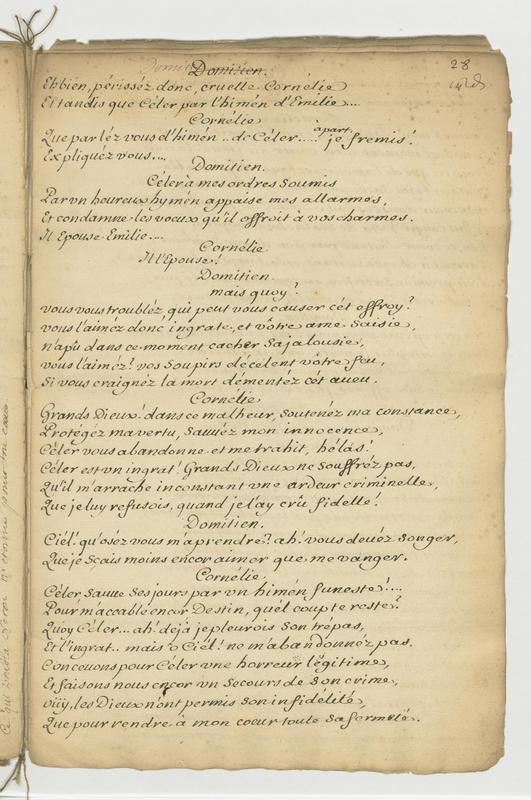 28
Domitien.
Ehbien, périsséz donc, cruelle Cornélie
Et tandis que Céler par l'himén d'Emilie....
Cornélie
à part.
Que parléz vous d'himén .. de Céler..... je fremis!
Expliquéz vous....
Domitien.
Céler à mes ordres Soumis
Par vn heureux hymén appaise mes allarmes,
Et condamne les voeux qu'il offroit à vos charmes.
Il Epouse Emilie....
Cornélie.
Il l'Epouse!
Domitien.
mais quoy?
vous vous troubléz, qui peut vous causer cét effroy?
vous l'aiméz donc ingrate, et vôtre ame Saisie,
n'a pû dans ce moment cacher Sa jalousie,
vous l'aiméz! vos Soupirs décélent vôtre feu,
Si vous craignéz la mort démentéz cét aueu.
Cornélie
Grands Dieux! dans ce malheur, Soutenéz ma constance,
Protégéz ma vertu, Sauuéz mon innocence,
Céler vous abandonne et me trahit, hélas!
Céler est vn ingrat! Grands Dieux ne Souffréz pas,
Qu'il m'arrache inconstant vne ardeur criminelle,
Que je luy refusois, quand je l'ay crû fidelle!
Domitien.
Ciél! qu'oséz vous m'aprendre? ah! vous deuéz Songer,
Que je Sçais moins encor aimer que me vanger.
Cornélie.
Céler Sauue Ses jours par vn himén funeste!....
Pour m'accable encor Destin, quél coup te reste?
Quoy Céler... ah! déjà je pleurois Son trépas,
Et l'ingrat.. mais ô Ciél! ne m'abandonnéz pas.
Conceuons pour Céler vne horreur légitime,
Et faisons nous encor vn Secours de Son crime,
oüy, les Dieux n'ont permis Son infidélité,
Que pour rendre à mon coeur toute Sa fermeté.